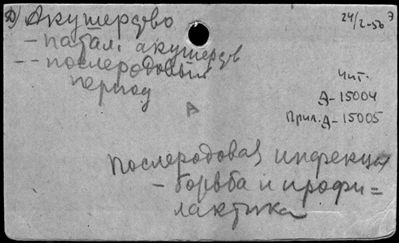 Д) Акушерство
24/2-56
- патал. акушерств
-- послеродовый
период
Чит.
Д-15004
Прил. Д-15005
А
Послеродовая инфекция
- борьба и профи=
лактика